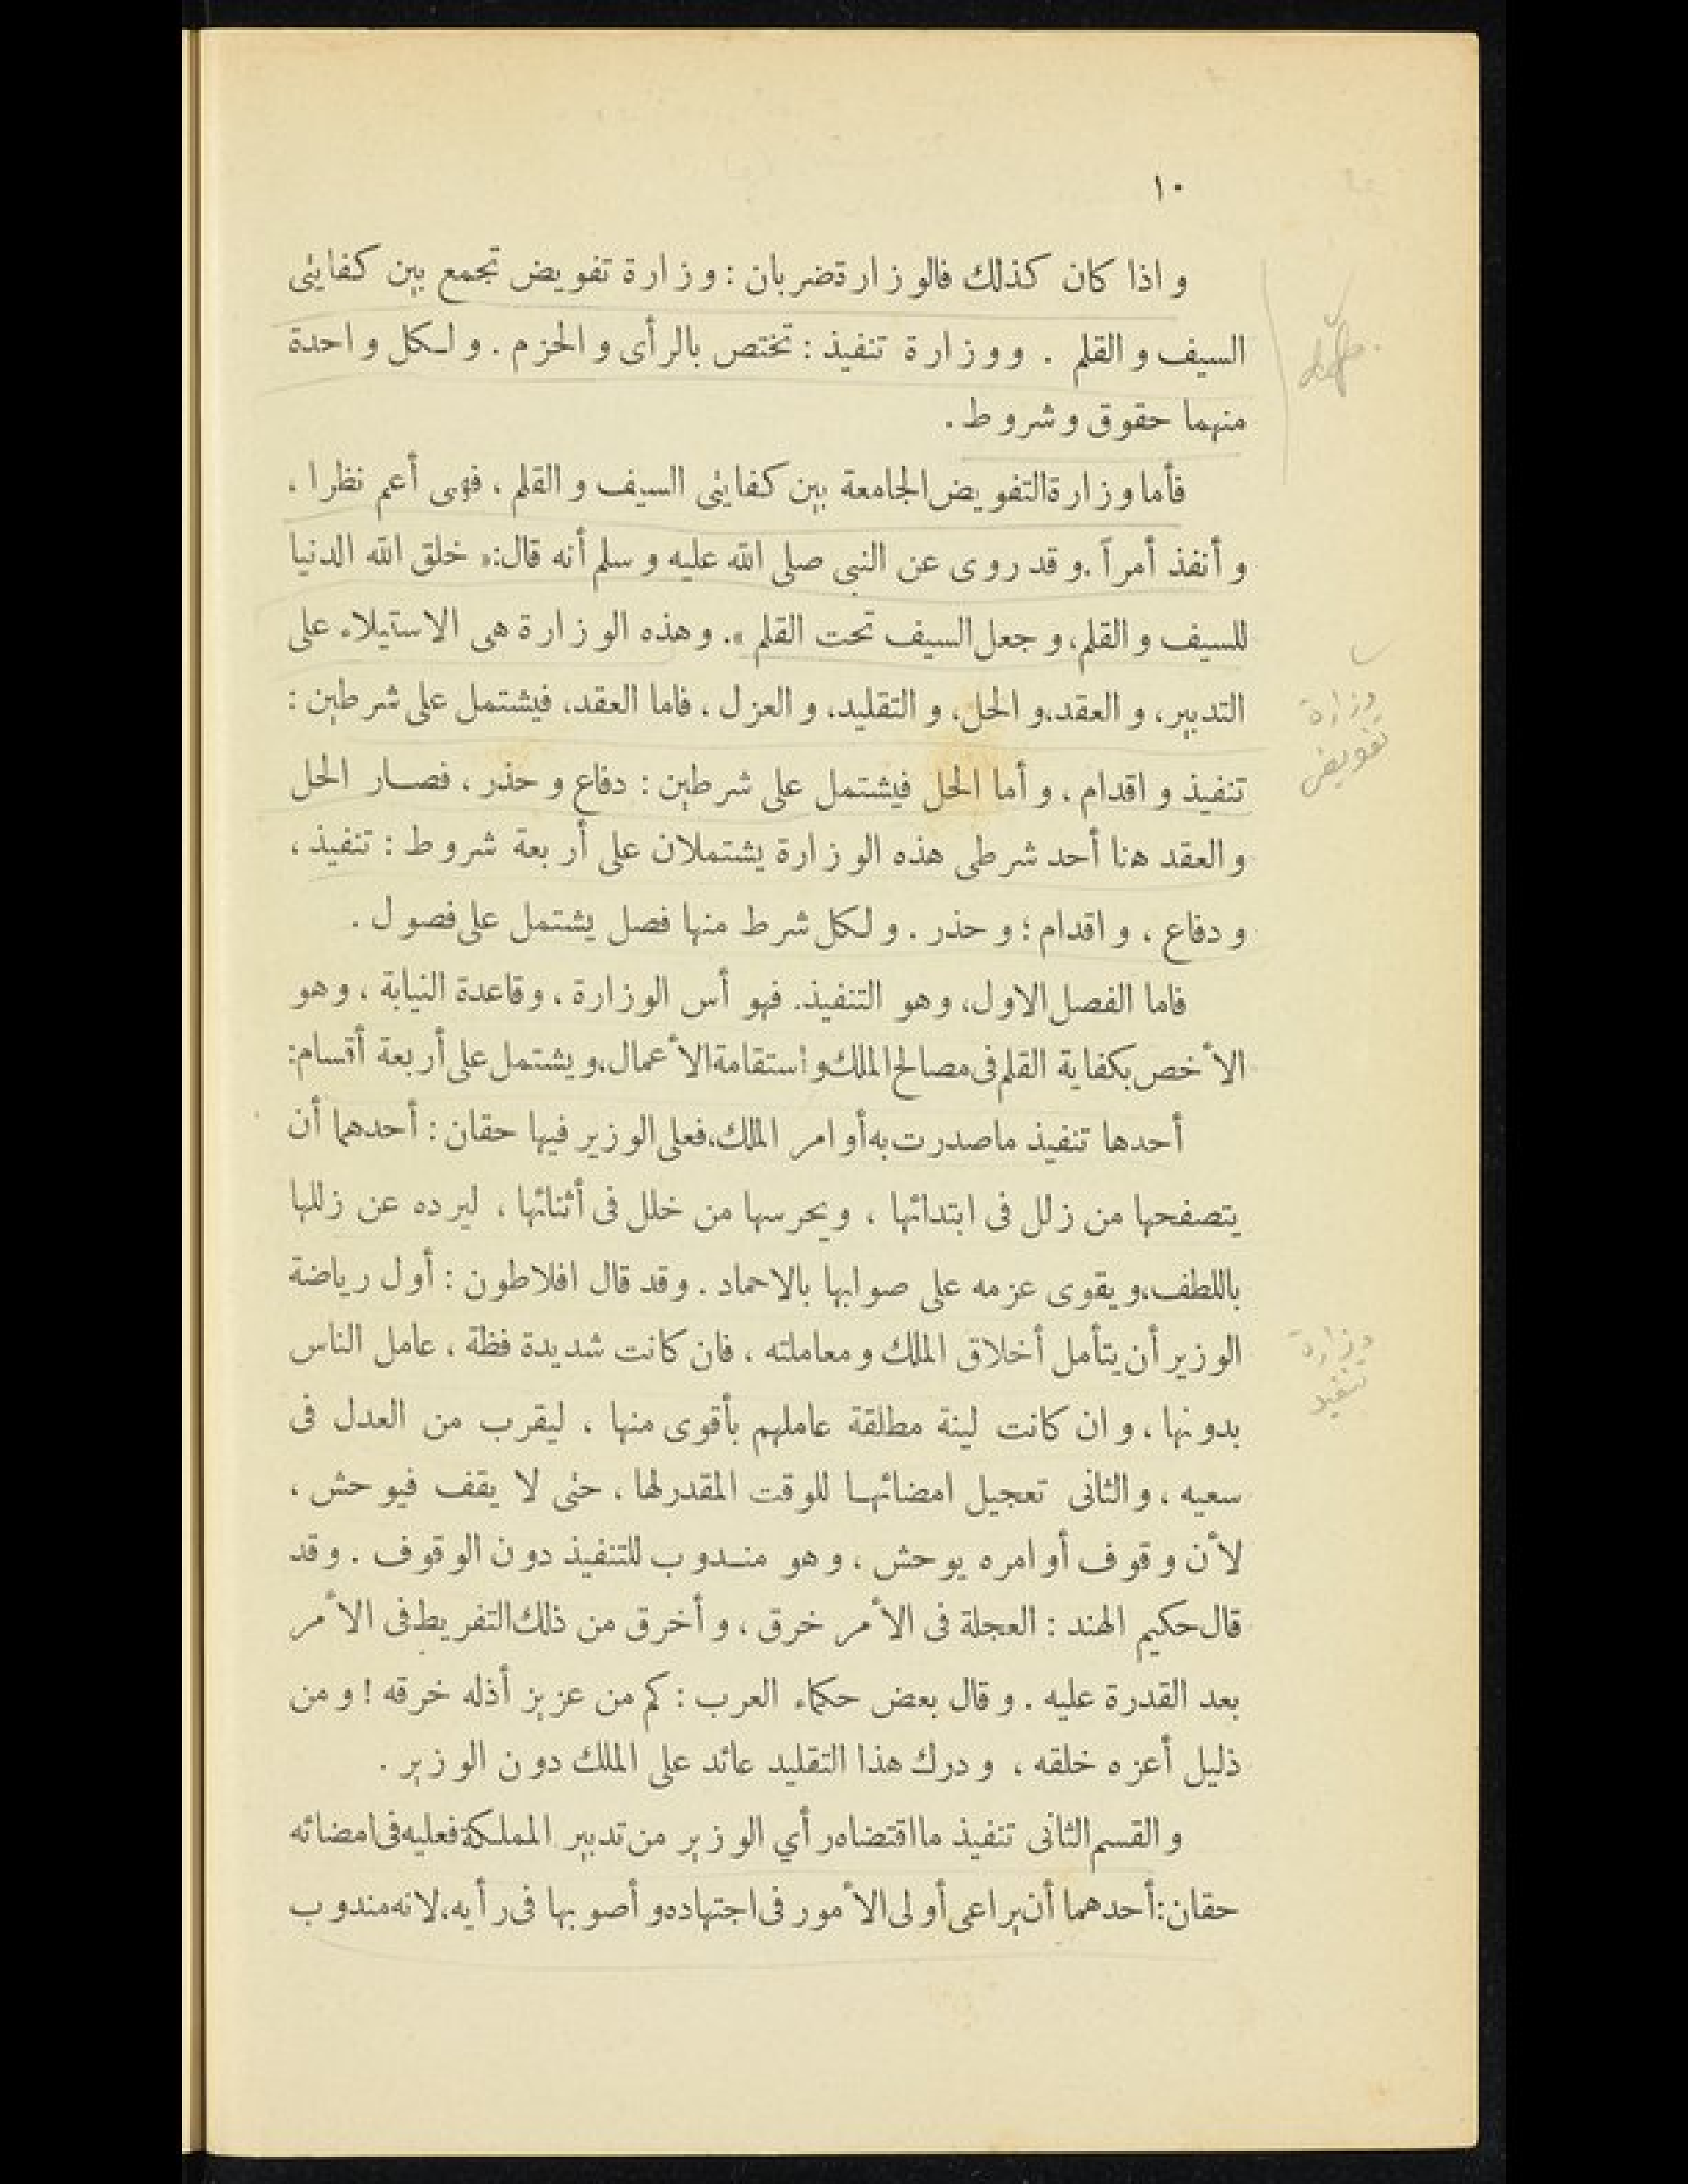 ١٠
واذا كان كذلك فالوزارة ضربان : وزارة تفويض تجمع بين كفايتى
السيف والقلم . ووزارة تنفيذ : تختص بالرأى والحزم . ولكل واحدة
منهما حقوق وشروط .
فأما وزارة التفويض الجامعة بين كفايتى السيف والقلم ، فهى أعم نظرا ،
وأنفذ أمراً . وقد روى عن النبى صلى الله عليه وسلم أنه قال : « خلق الله الدنيا
للسيف والقلم ، وجعل السيف تحت القلم » . وهذه الوزارة هى الاستيلاء على
التدبير ، والعقد ، والحل ، والتقليد ، والعزل ، فاما العقد ، فيشتمل على شرطين :
وزارة
تفويض
تنفيذ واقدام ، وأما الحل فيشتمل على شرطين : دفاع وحذر ، فصار الحل
والعقد هنا أحد شرطى هذه الوزارة يشتملان على أربعة شروط : تنفيذ ،
ودفاع ، واقدام ؛ وحذر . ولكل شرط منها فصل يشتمل على فصول .
فاما الفصل الاول ، وهو التنفيذ . فهو أس الوزارة ، وقاعدة النيابة ، وهو
الأخص بكفاية القلم فى مصالح الملك واستقامة الأعمال ، ويشتمل على أربعة أقسام :
أحدها تنفيذ ما صدرت به أوامر الملك ، فعلى الوزير فيها حقان : أحدهما أن
يتصفحها من زلل فى ابتدائها ، ويحرسها من خلل فى أثنائها ، ليرده عن زللها
باللطف ، ويقوى عزمه على صوابها بالاحماد . وقد قال افلاطون : أول رياضة
الوزير أن يتأمل أخلاق الملك ومعاملته ، فان كانت شديدة فظة ، عامل الناس
وزارة
تنفيذ
بدونها ، وان كانت لينة مطلقة عاملهم بأقوى منها ، ليقرب من العدل فى
سعيه ، والثانى تعجيل امضائها للوقت المقدر لها ، حتى لا يقف فيوحش ،
لأن وقوف أوامره يوحش ، وهو مندوب للتنفيذ دون الوقوف . وقد
قال حكيم الهند : العجلة فى الأمر خرق ، وأخرق من ذلك التفريط فى الأمر
بعد القدرة عليه . وقال بعض حكماء العرب : كم من عزيز أذله خرقه ! ومن
ذليل أعزه خلقه ، ودرك هذا التقليد عائد على الملك دون الوزير .
والقسم الثانى تنفيذ ما اقتضاه رأي الوزير من تدبير المملكة فعليه فى امضائه
حقان : أحدهما أن يراعى أولى الأمور فى اجتهاده وأصوبها فى رأيه ، لانه مندوب